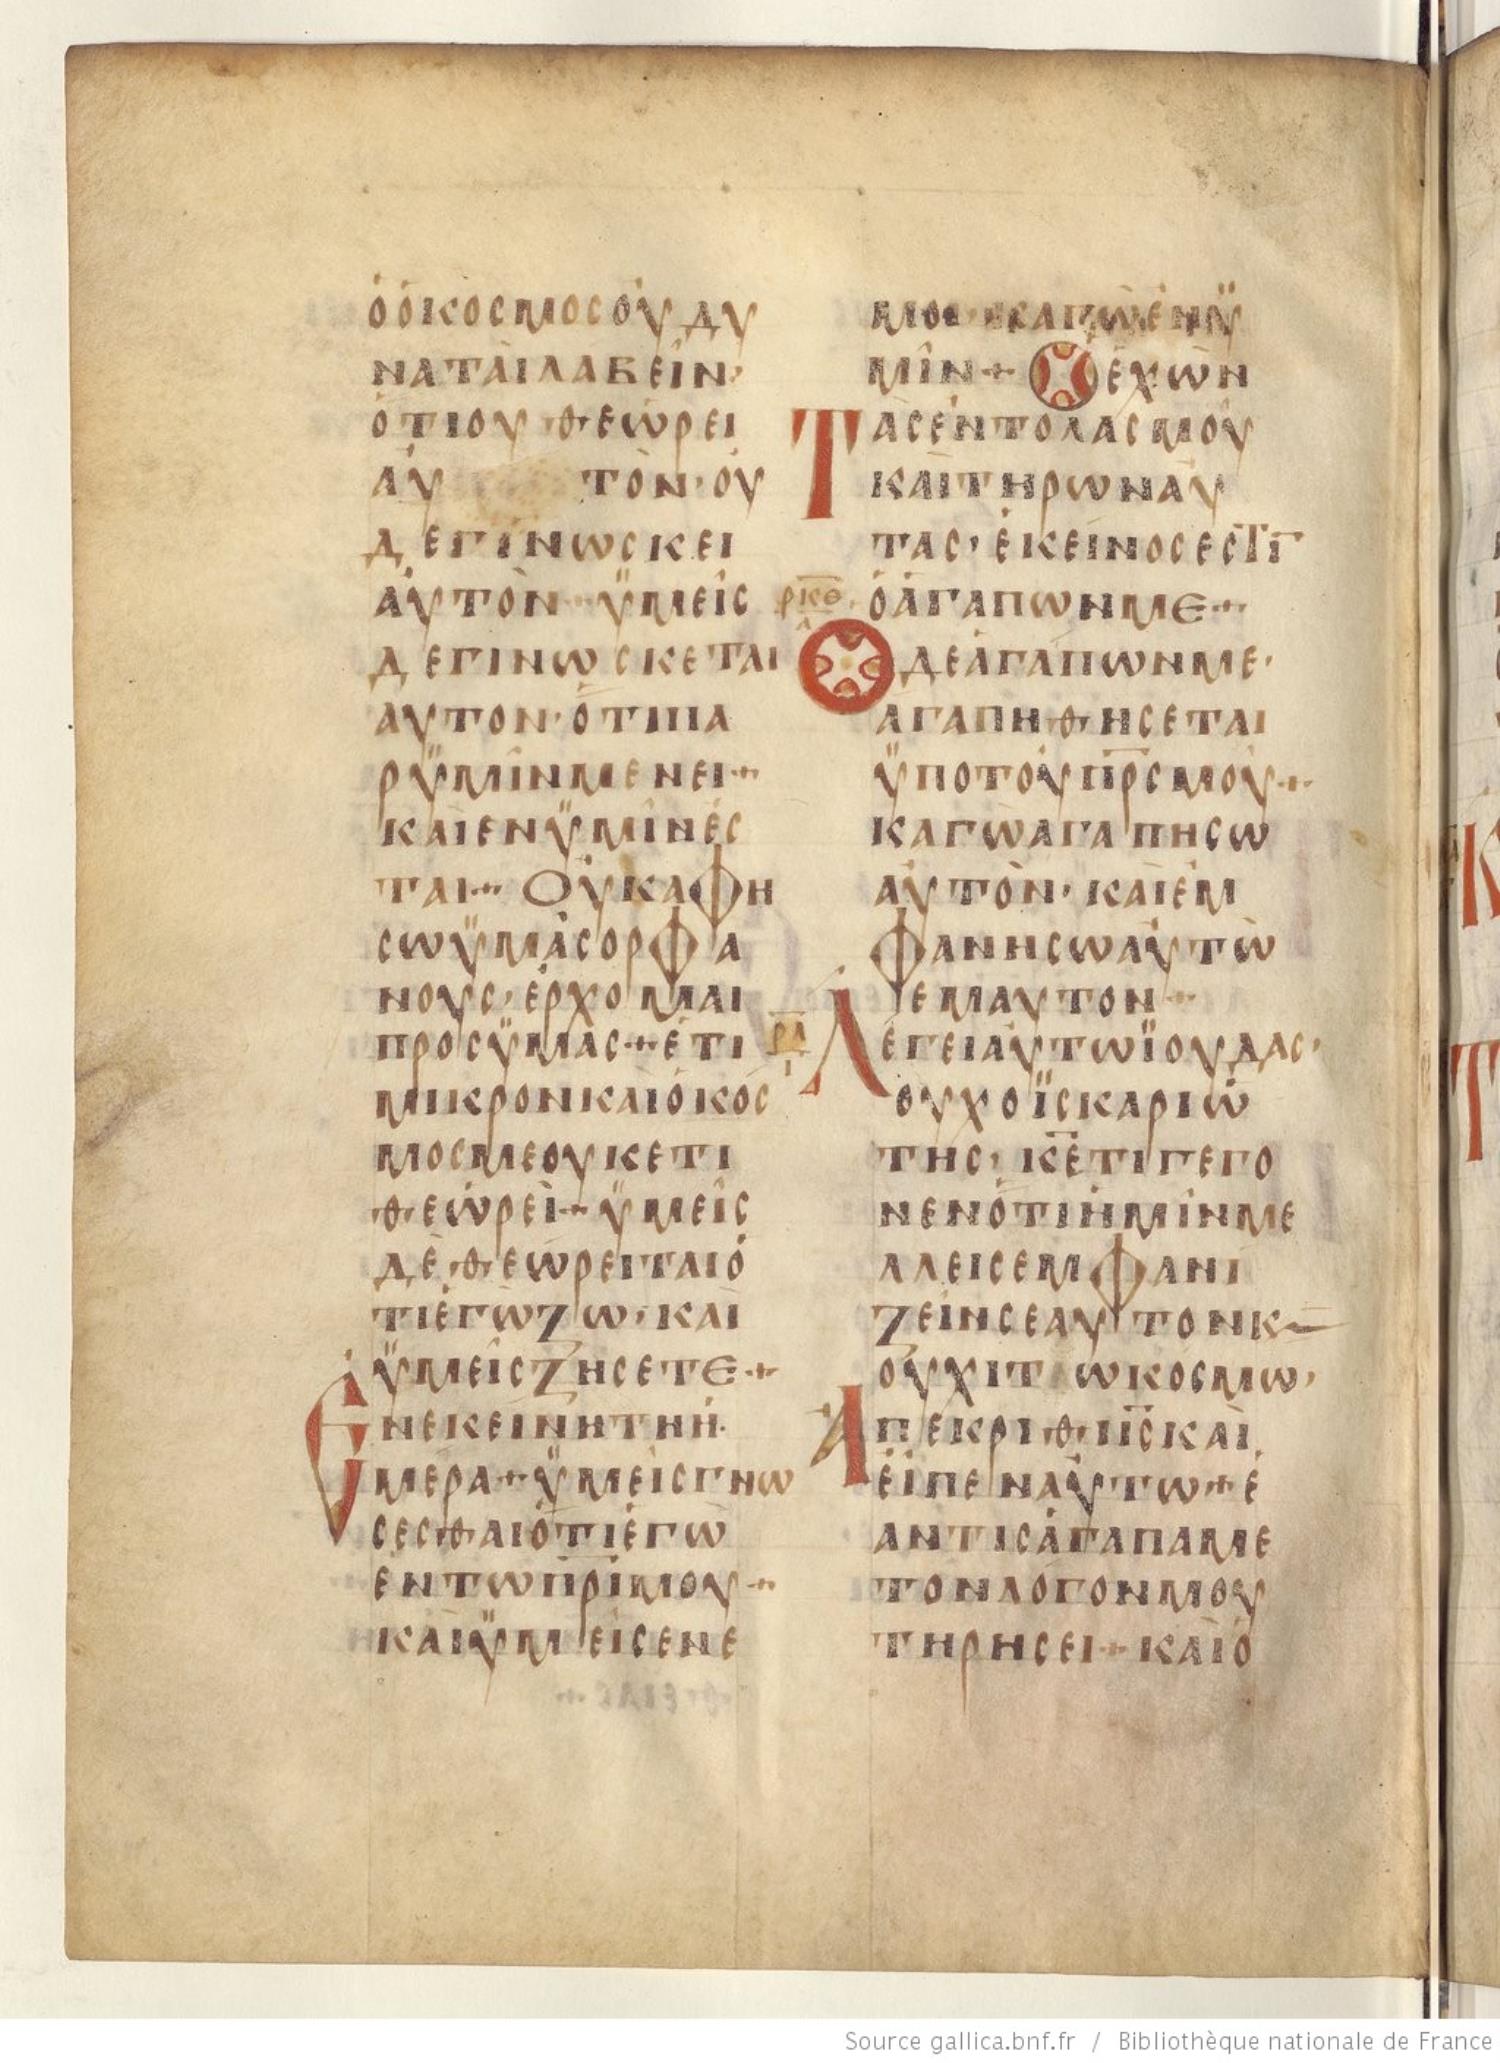 ὁ ὁ κοσμος οὐ δυ
ναταὶ λαβεῖν·
ὁτι ου θεώρει
αὐτὸν· οὐ
δε γινωσκει
αὐτὸν· ϋμεῖς
δε γινωσκεται
αυτον· ὅτι πα
ρ ϋμῖν μενει+
καὶ εν ϋμῖν ἐς
ται+ Οὐκ αφη
σω ϋμᾶς ορφα
νους· ἐρχομαι
προς ϋμας+ ἐτι
μικρον καὶ ὁ κός
μος με ουκετι
θεώρεὶ+ ϋμεῖς
δὲ θεώρειται ὁ
τι ἐγὼ ζω· καὶ
ϋμεῖς ζησετε+
Ἐν εκεινη τη ἡ
μέρα+ ϋμεῖς γνω
σεσθαι ὁτι ἐγὼ
ἐν τω πρι μου+
καὶ ϋμεῖς εν ε
μοι· καγὼ ἐν ϋ
μῖν+ Ὁ ἐχων
Τὰς ἐντολας μοῦ
καὶ τηρων αὐ
τας· ἐκεῖνος εστι
ρκθ
ὁ ἀγαπων με+
Ο δε ἀγαπων με·
ἀγαπηθησεται
ϋπο τοῦ πρς μοῦ+
καγὼ αγαπησω
αὐτὸν· καὶ ἐμ
φανησω αὐτὼ
εμαυτον+
ρλ
ι
Λέγει αὐτω ϊουδας·
ουχ ο ϊσκαριώ
της· κε τι γεγο
νεν ὁτι ἡμῖν με
λλεις εμφανι
ζεῖν σεαυτον κ
οὐχι τω κοσμω·
Απεκριθη ις καὶ
ἐῖπεν αὐτω+ ἐ
αν τις ἀγαπα με
τον λόγον μου
τηρησει+ καὶ ὁ
Source gallica.bnf.fr / Bibliothèque nationale de France